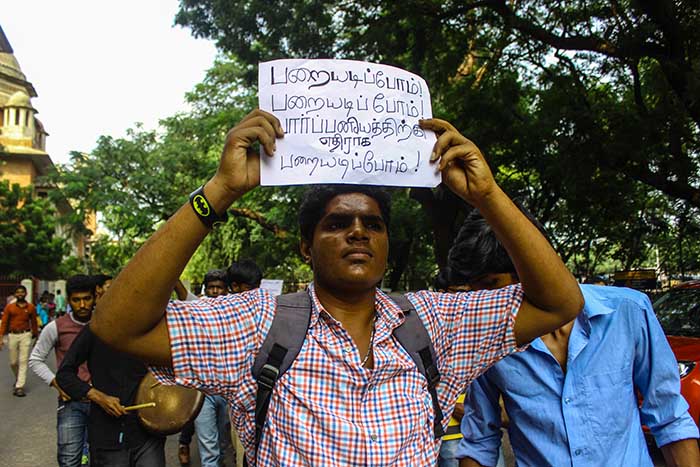 பறையடிப்போம்!
பறையடிப் போம்!
பார்ப்பனியத்திற்கு
எதிராக
பறையடிப்போம் !